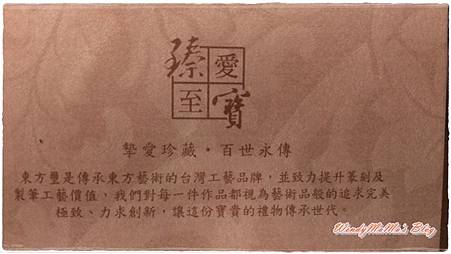 臻愛
至寶
摯愛珍藏・百世永傳
東方璽是傳承東方藝術的台灣工藝品牌，並致力提升篆刻及
製筆工藝價值，我們對每一件作品都視為藝術品般的追求完美
極致、力求創新，讓這份寶貴的禮物傳承世代。
WendyMaMa's Blog